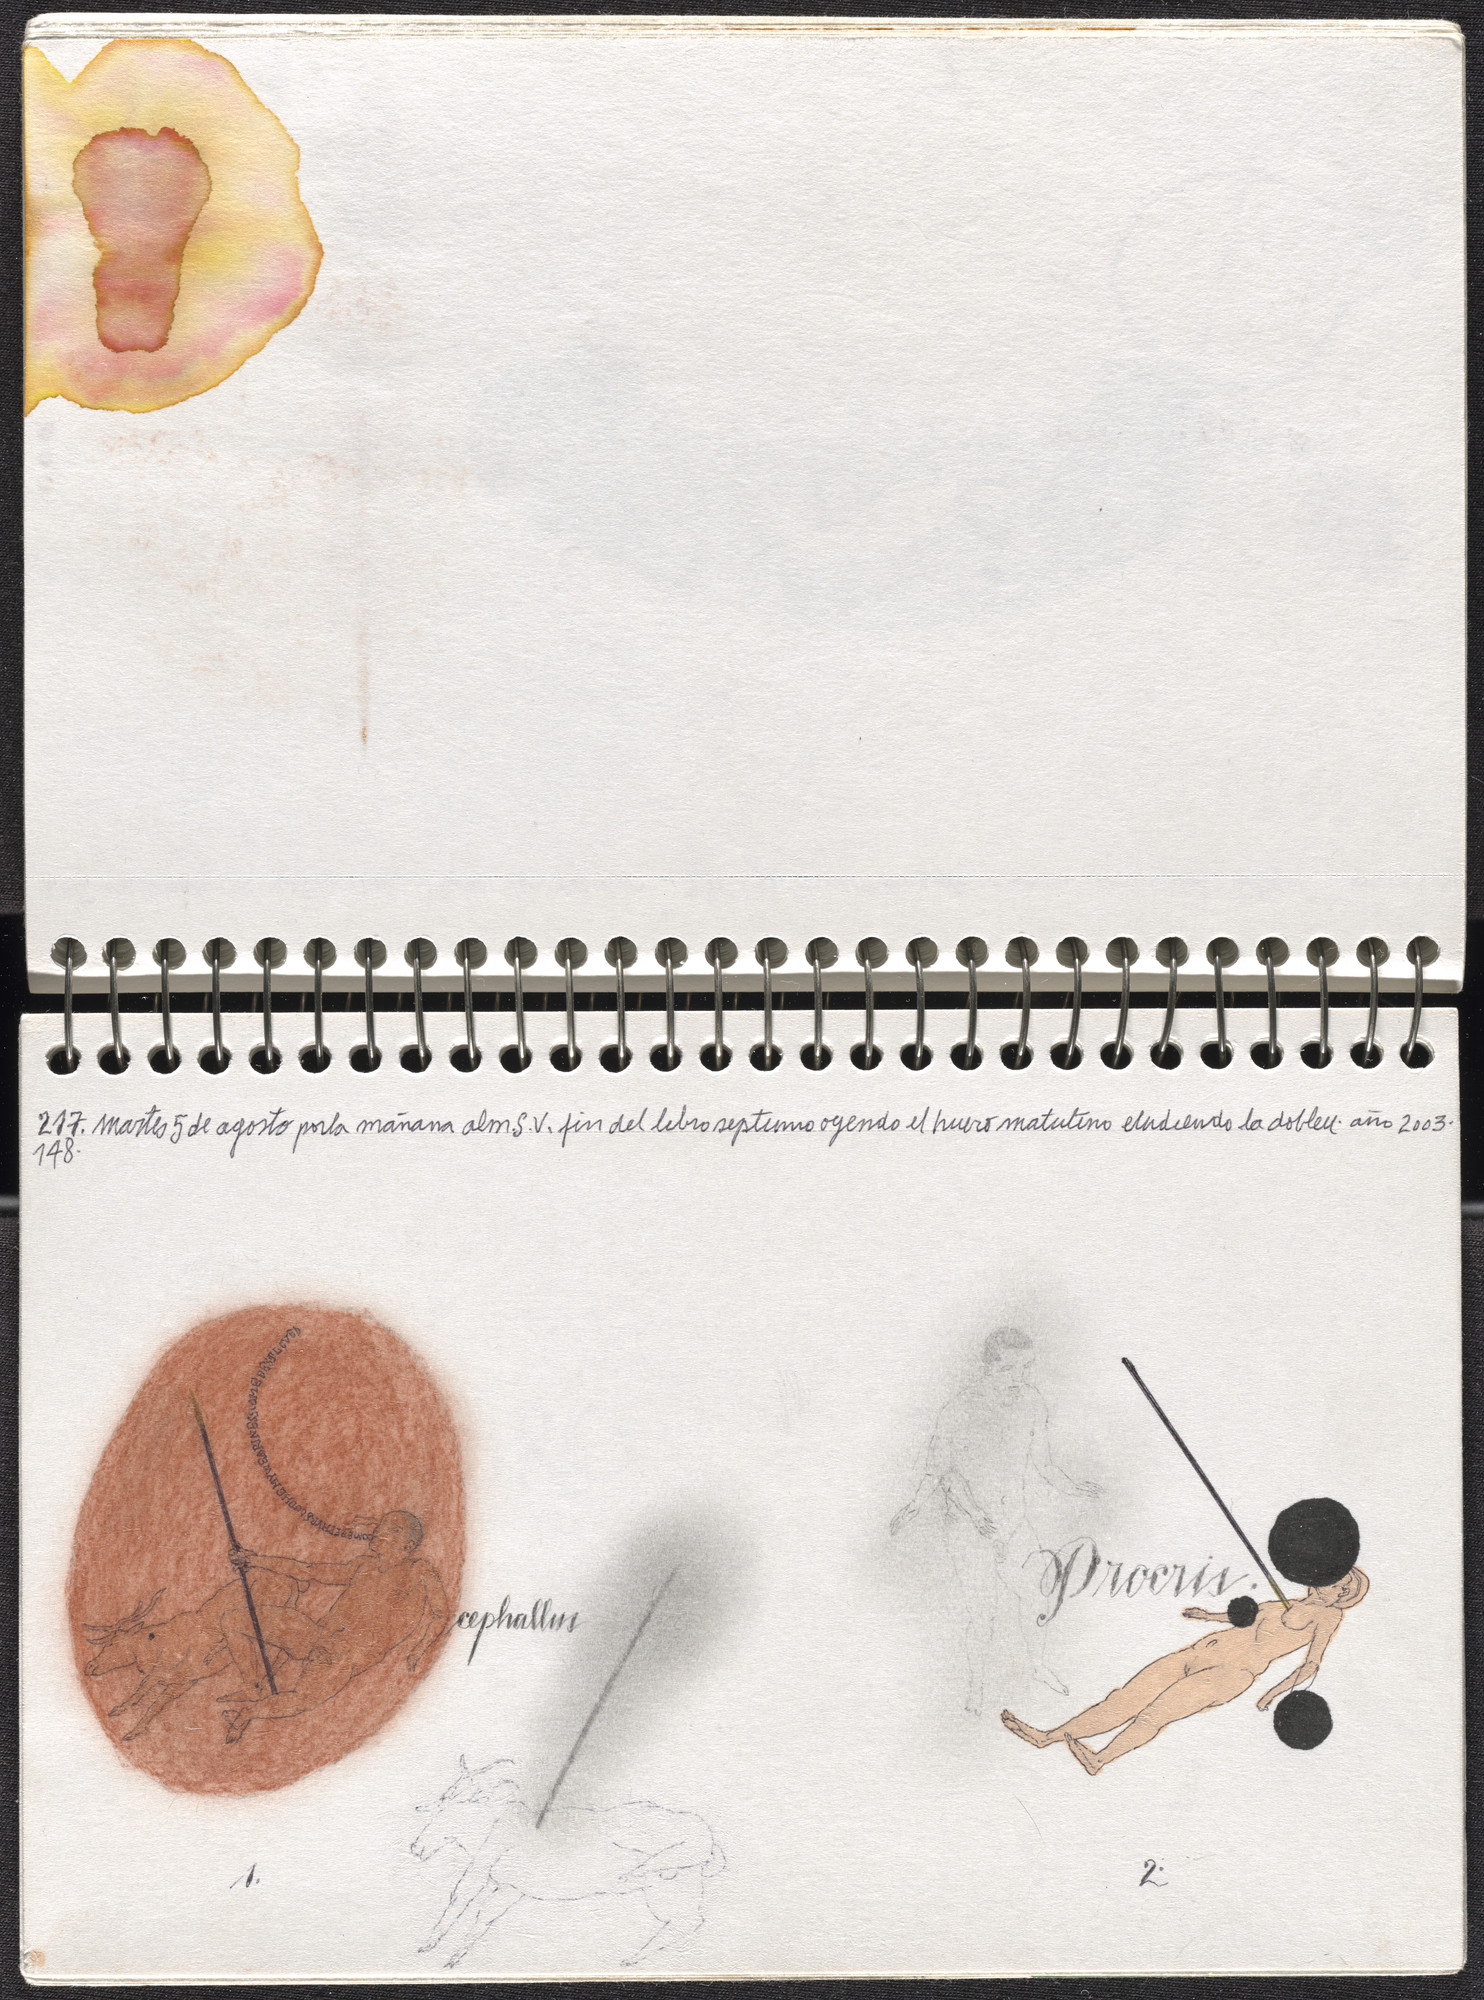 217. Martes 5 de agosto por la mañana alm S.V. fin del libro septimo oyendo el huero matutino eludiendo la dobleu. año 2003.
148.
cephallus
Procris.
1.
2.